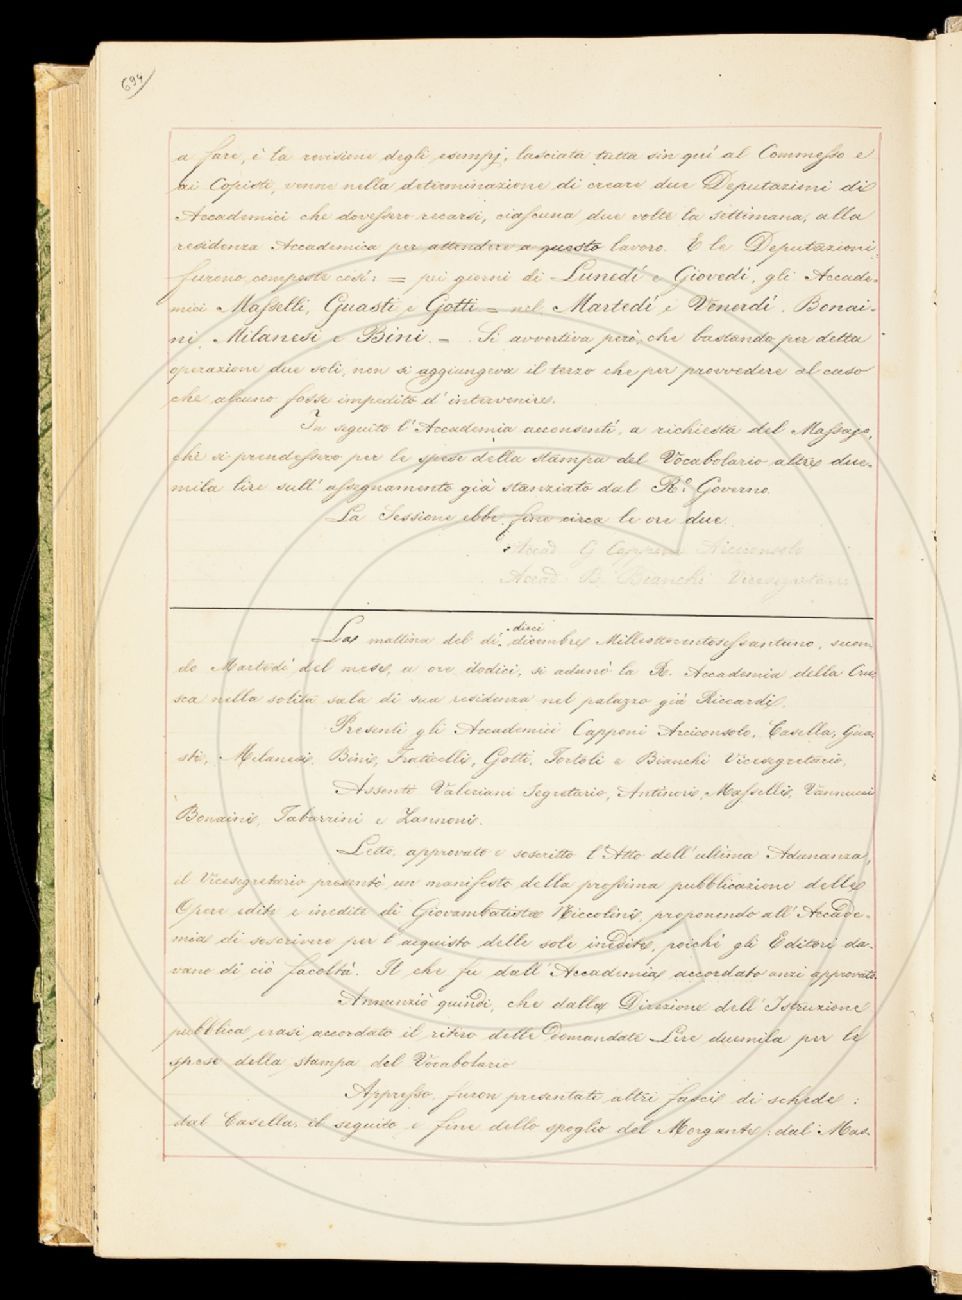 694
a fare, è la revisione degli esempj, lasciata tutta sin quì al Commesso e
ai Copisti, venne nella determinazione di creare due Deputazioni di
Accademici che dovessero recarsi, ciascuna due volte la settimana, alla
residenza Accademica per attendere a questo lavoro. E le Deputazioni
furono composte così: = pei giorni di Lunedí e Giovedí, gli Accade-
mici Masselli, Guasti e Gotti = nel Martedí e Venerdí, Bonai-
ni, Milanesi e Bini. = Si avvertiva però, che bastando per detta
operazione due soli, non si aggiungeva il terzo che per provvedere al caso
che alcuno fosse impedito d'intervenire.
In seguito l'Accademia acconsentí, a richiesta del Massajo,
che si prendessero per le spese della stampa del Vocabolario altre due-
mila lire sull'assegnamento già stanziato dal R.º Governo.
La Sessione ebbe fine circa le ore due.
Accad. G Capponi Arciconsolo
Accad. B. Bianchi Vicesegretario
La mattina del dí dieci dicembre Milleottocentosessantuno, secon-
do Martedí del mese, a ore dodici, si adunò la R. Accademia della Cru-
sca nella solita sala di sua residenza nel palazzo già Riccardi.
Presenti gli Accademici Capponi Arciconsolo, Casella, Gua-
sti, Milanesi, Bini, Fraticelli, Gotti, Tortoli e Bianchi Vicesegretario.
Assenti Valeriani Segretario, Antinori, Masselli, Vannucci
Bonaini, Tabarrini e Zannoni.
Letto, approvato e soscritto l'Atto dell'ultima Adunanza,
il Vicesegretario presentò un manifesto della prossima pubblicazione delle
Opere edite e inedite di Giovambatista Niccolini, proponendo all'Accade-
mia di soscrivere per l'acquisto delle sole inedite, poichè gli Editori da-
vano di ciò facoltà. Il che fu dall'Accademia accordato anzi approvato.
Annunziò quindi, che dalla Direzione dell'Istruzione
pubblica erasi accordato il ritiro delle domandate Lire duemila per le
spese della stampa del Vocabolario
Appresso furon presentati altri fasci di schede:
dal Casella, il seguito e fine dello spoglio del Morgante; dal Mas-